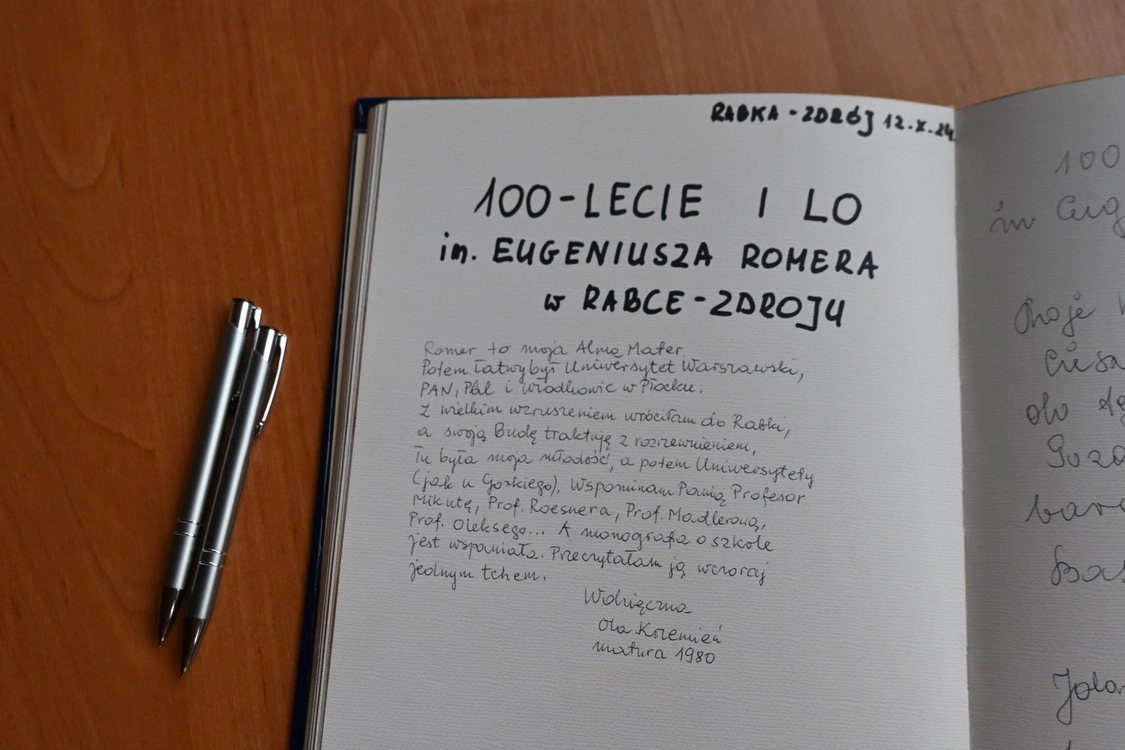 RABKA-ZDRÓJ 12.X.24
100-LECIE I LO
im. EUGENIUSZA ROMERA
w RABCE-ZDROJU
Romer to moja Alma Mater.
Potem łatwy był Uniwersytet Warszawski,
PAN, PAL i Włodkowic w Płocku.
Z wielkim wzruszeniem wróciłam do Rabki,
a swoją Budę traktuję z rozrzewnieniem,
Tu była moja młodość, a potem Uniwersytety
(jak u Gorkiego), Wspominam Panią Profesor
Mikułę, Prof. Roesnera, Prof. Madlerową,
Prof. Oleksego... A monografia o szkole
jest wspaniała. Przeczytałam ją wczoraj
jednym tchem.
Wdzięczna
Ola Krzemień
matura 1980
100
im Eug